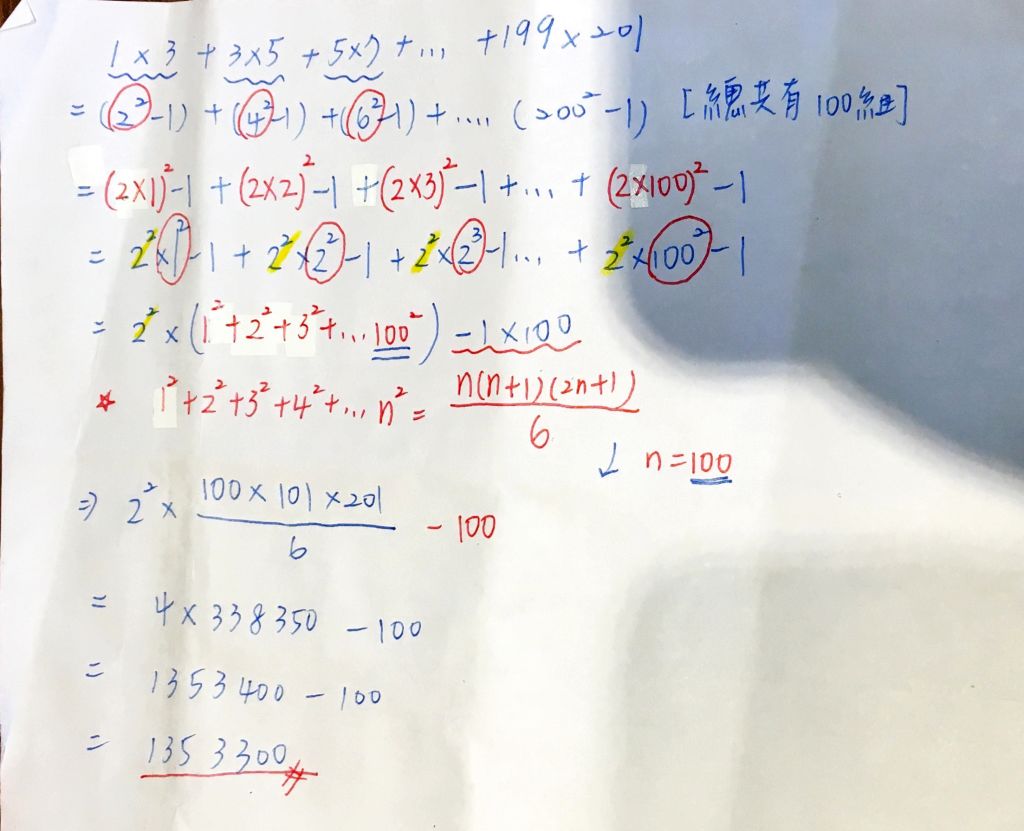 1×3 + 3×5 + 5×7 + ... +199×201
= (2²-1) + (4²-1) + (6²-1) + .... (200²-1) [總共有100組]
= (2×1)²-1 + (2×2)²-1 + (2×3)²-1 + ... + (2×100)²-1
= 2²×1²-1 + 2²×2²-1 + 2²×2³-1... + 2²×100²-1
= 2²×(1²+2²+3²+...100²) -1×100
* 1²+2²+3²+4²+...n² = n(n+1)(2n+1)/6
↓ n=100
⇒ 2²× 100×101×201/6 - 100
= 4×338350 -100
= 1353400 - 100
= 1353300